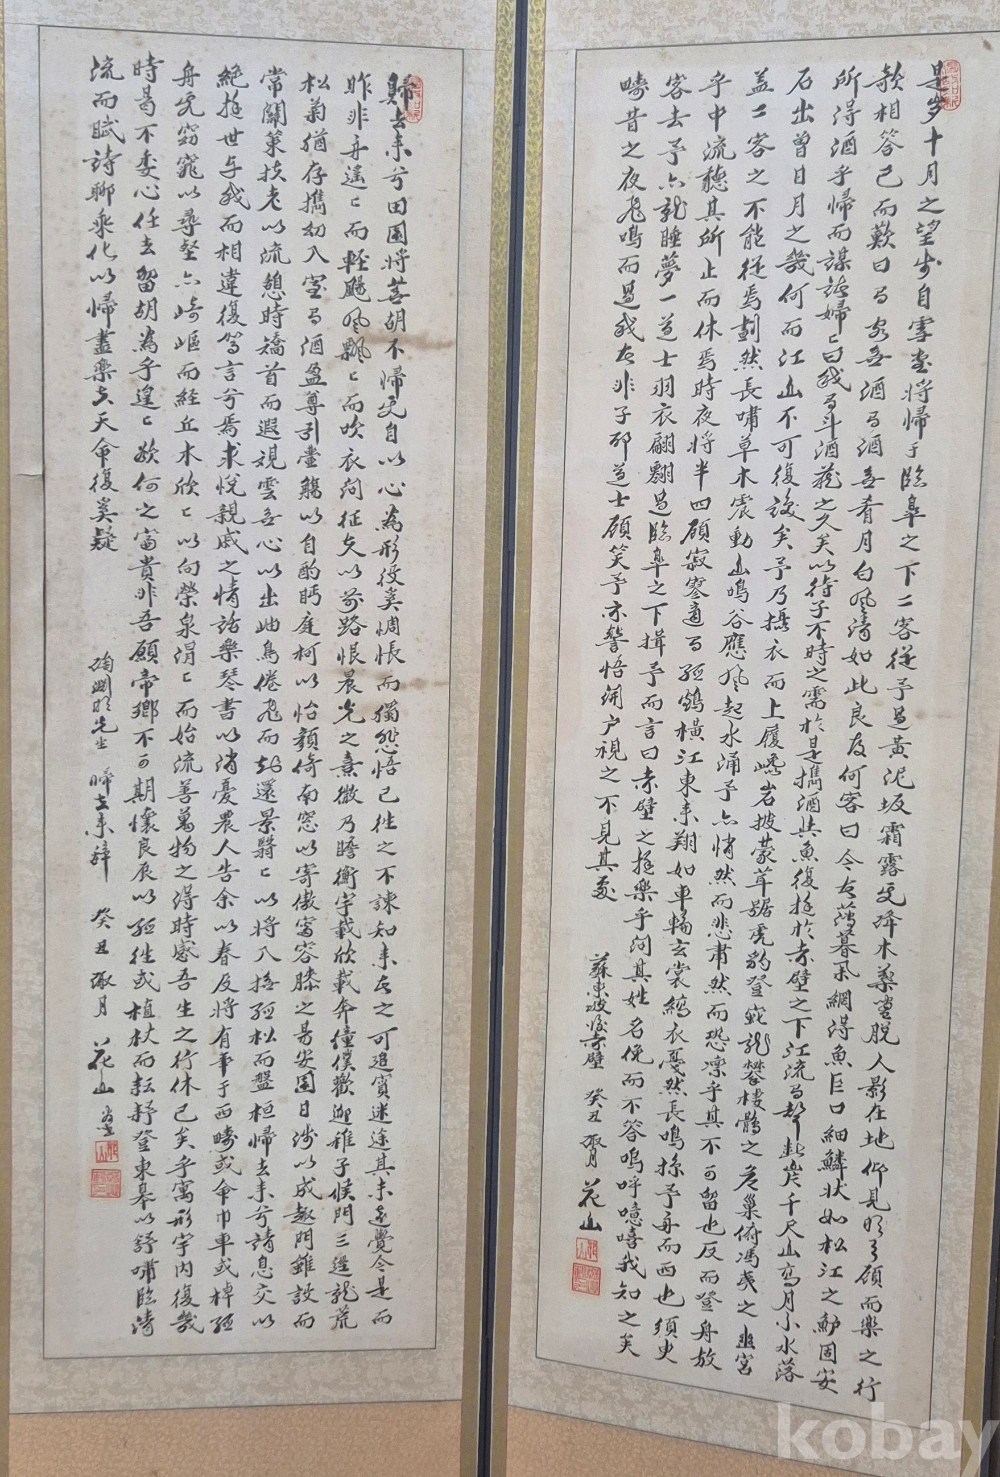 是歲十月之望步自雪堂將歸于臨皐之下二客從予過黃泥坂霜露旣降木葉盡脫人影在地仰見明月顧而樂之行
歌相答已而歎曰有客無酒有酒無肴月白風清如此良夜何客曰今者薄暮擧網得魚巨口細鱗狀如松江之鱸固安
所得酒乎歸而謀諸婦〻曰我有斗酒藏之久矣以待子不時之需於是攜酒與魚復遊於赤壁之下江流有聲斷岸千尺山高月小水落
石出曾日月之幾何而江山不可復識矣予乃攝衣而上履巉岩披蒙茸踞虎豹登虯龍攀棲鶻之危巢俯馮夷之幽宮
盖二客之不能從焉劃然長嘯草木震動山鳴谷應風起水涌予亦悄然而悲肅然而恐凜乎其不可留也反而登舟放
乎中流聽其所止而休焉時夜將半四顧寂寥適有孤鶴橫江東來翔如車輪玄裳縞衣戛然長鳴掠予舟而西也須臾
客去予亦就睡夢一道士羽衣翩翩過臨皐之下揖予而言曰赤壁之遊樂乎問其姓名俛而不答嗚呼噫嘻我知之矣
疇昔之夜飛鳴而過我者非子邪道士顧笑予亦驚悟開戶視之不見其處 蘇東坡後赤壁 癸丑 菊月 花山
歸去來兮田園將蕪胡不歸旣自以心爲形役奚惆悵而獨悲悟已往之不諫知來者之可追實迷途其未遠覺今是而
昨非舟遙〻而輕颺風飄〻而吹衣問征夫以前路恨晨光之熹微乃瞻衡宇載欣載奔僮僕歡迎稚子候門三逕就荒
松菊猶存攜幼入室有酒盈尊引壺觴以自酌眄庭柯以怡顏倚南窓以寄傲審容膝之易安園日涉以成趣門雖設而
常關策扶老以流憩時矯首而遐視雲無心以出岫鳥倦飛而知還景翳〻以將入撫孤松而盤桓歸去來兮請息交以
絶遊世與我而相違復駕言兮焉求悅親戚之情話樂琴書以消憂農人告余以春及將有事于西疇或命巾車或棹孤
舟旣窈窕以尋壑亦崎嶇而經丘木欣〻以向榮泉涓〻而始流善萬物之得時感吾生之行休已矣乎寓形宇內復幾
時曷不委心任去留胡爲乎遑〻欲何之富貴非吾願帝鄉不可期懷良辰以孤往或植杖而耘耔登東皋以舒嘯臨淸
流而賦詩聊乘化以歸盡樂夫天命復奚疑 陶淵明先生 歸去來辭 癸丑 菊月 花山
kobay